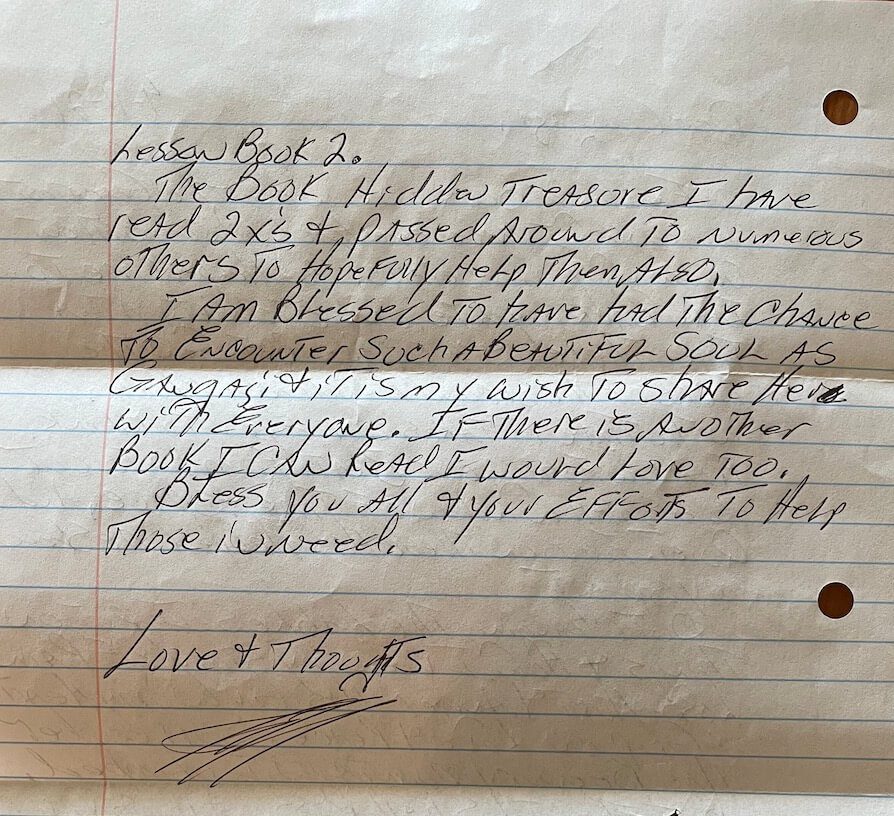 Lesson Book 2.
The Book Hidden Treasure I have
read 2x's & passed Around To Numerous
others To Hopefully Help Them Also.
I Am Blessed To have had The Chance
To Encounter Such A Beautiful Soul As
Gangaji & it is my wish To share Her
with Everyone. If There is Another
Book I Can Read I would Love Too.
Bless you All & your Efforts To Help
Those in need.
Love & Thougts